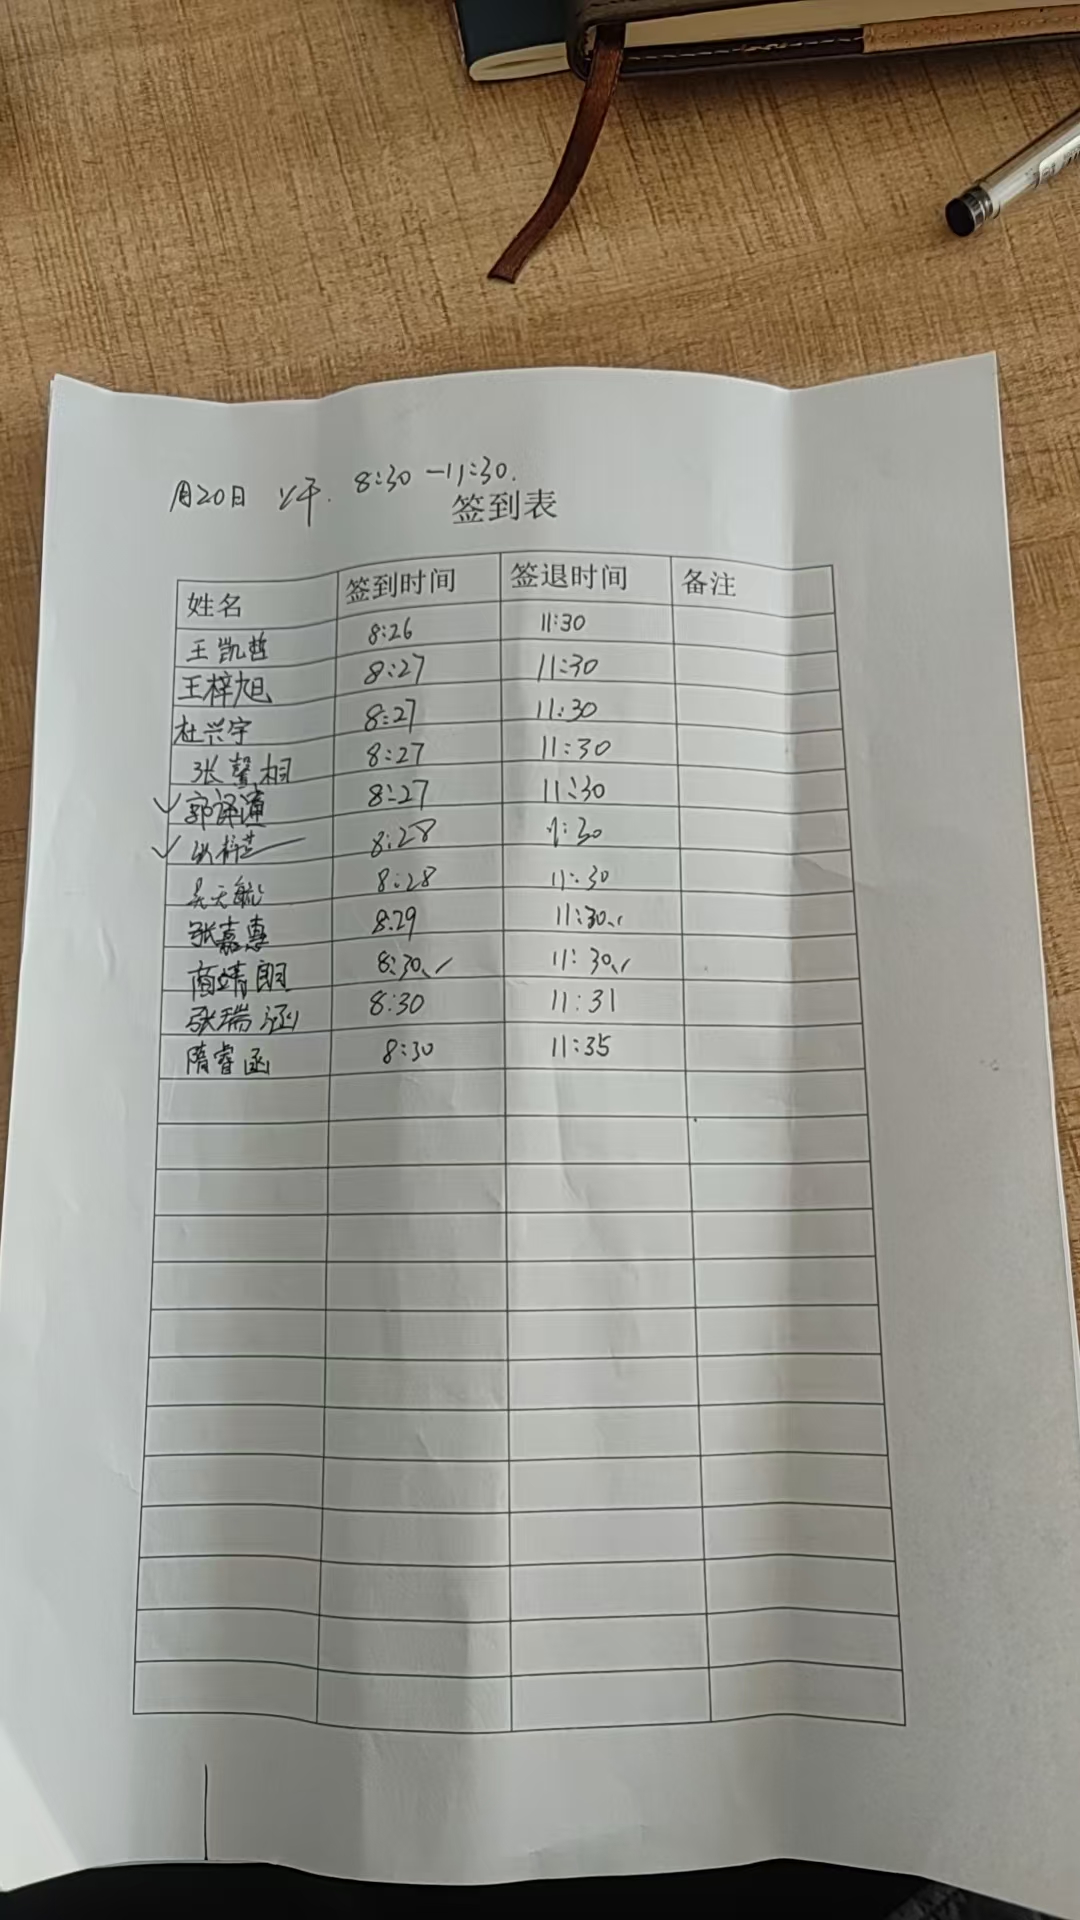 月20日 上午. 8:30-11:30.
签到表
姓名 签到时间 签退时间 备注
王凯哲 8:26 11:30
王梓旭 8:27 11:30
杜兴宇 8:27 11:30
张馨桐 8:27 11:30
✓ 郭译潼 8:27 11:30
✓ 8:28 11:30
吴天毓 8:28 11:30
张嘉惠 8:29 11:30
商靖朗 8:30 11:30
张瑞涵 8:30 11:31
隋睿函 8:30 11:35